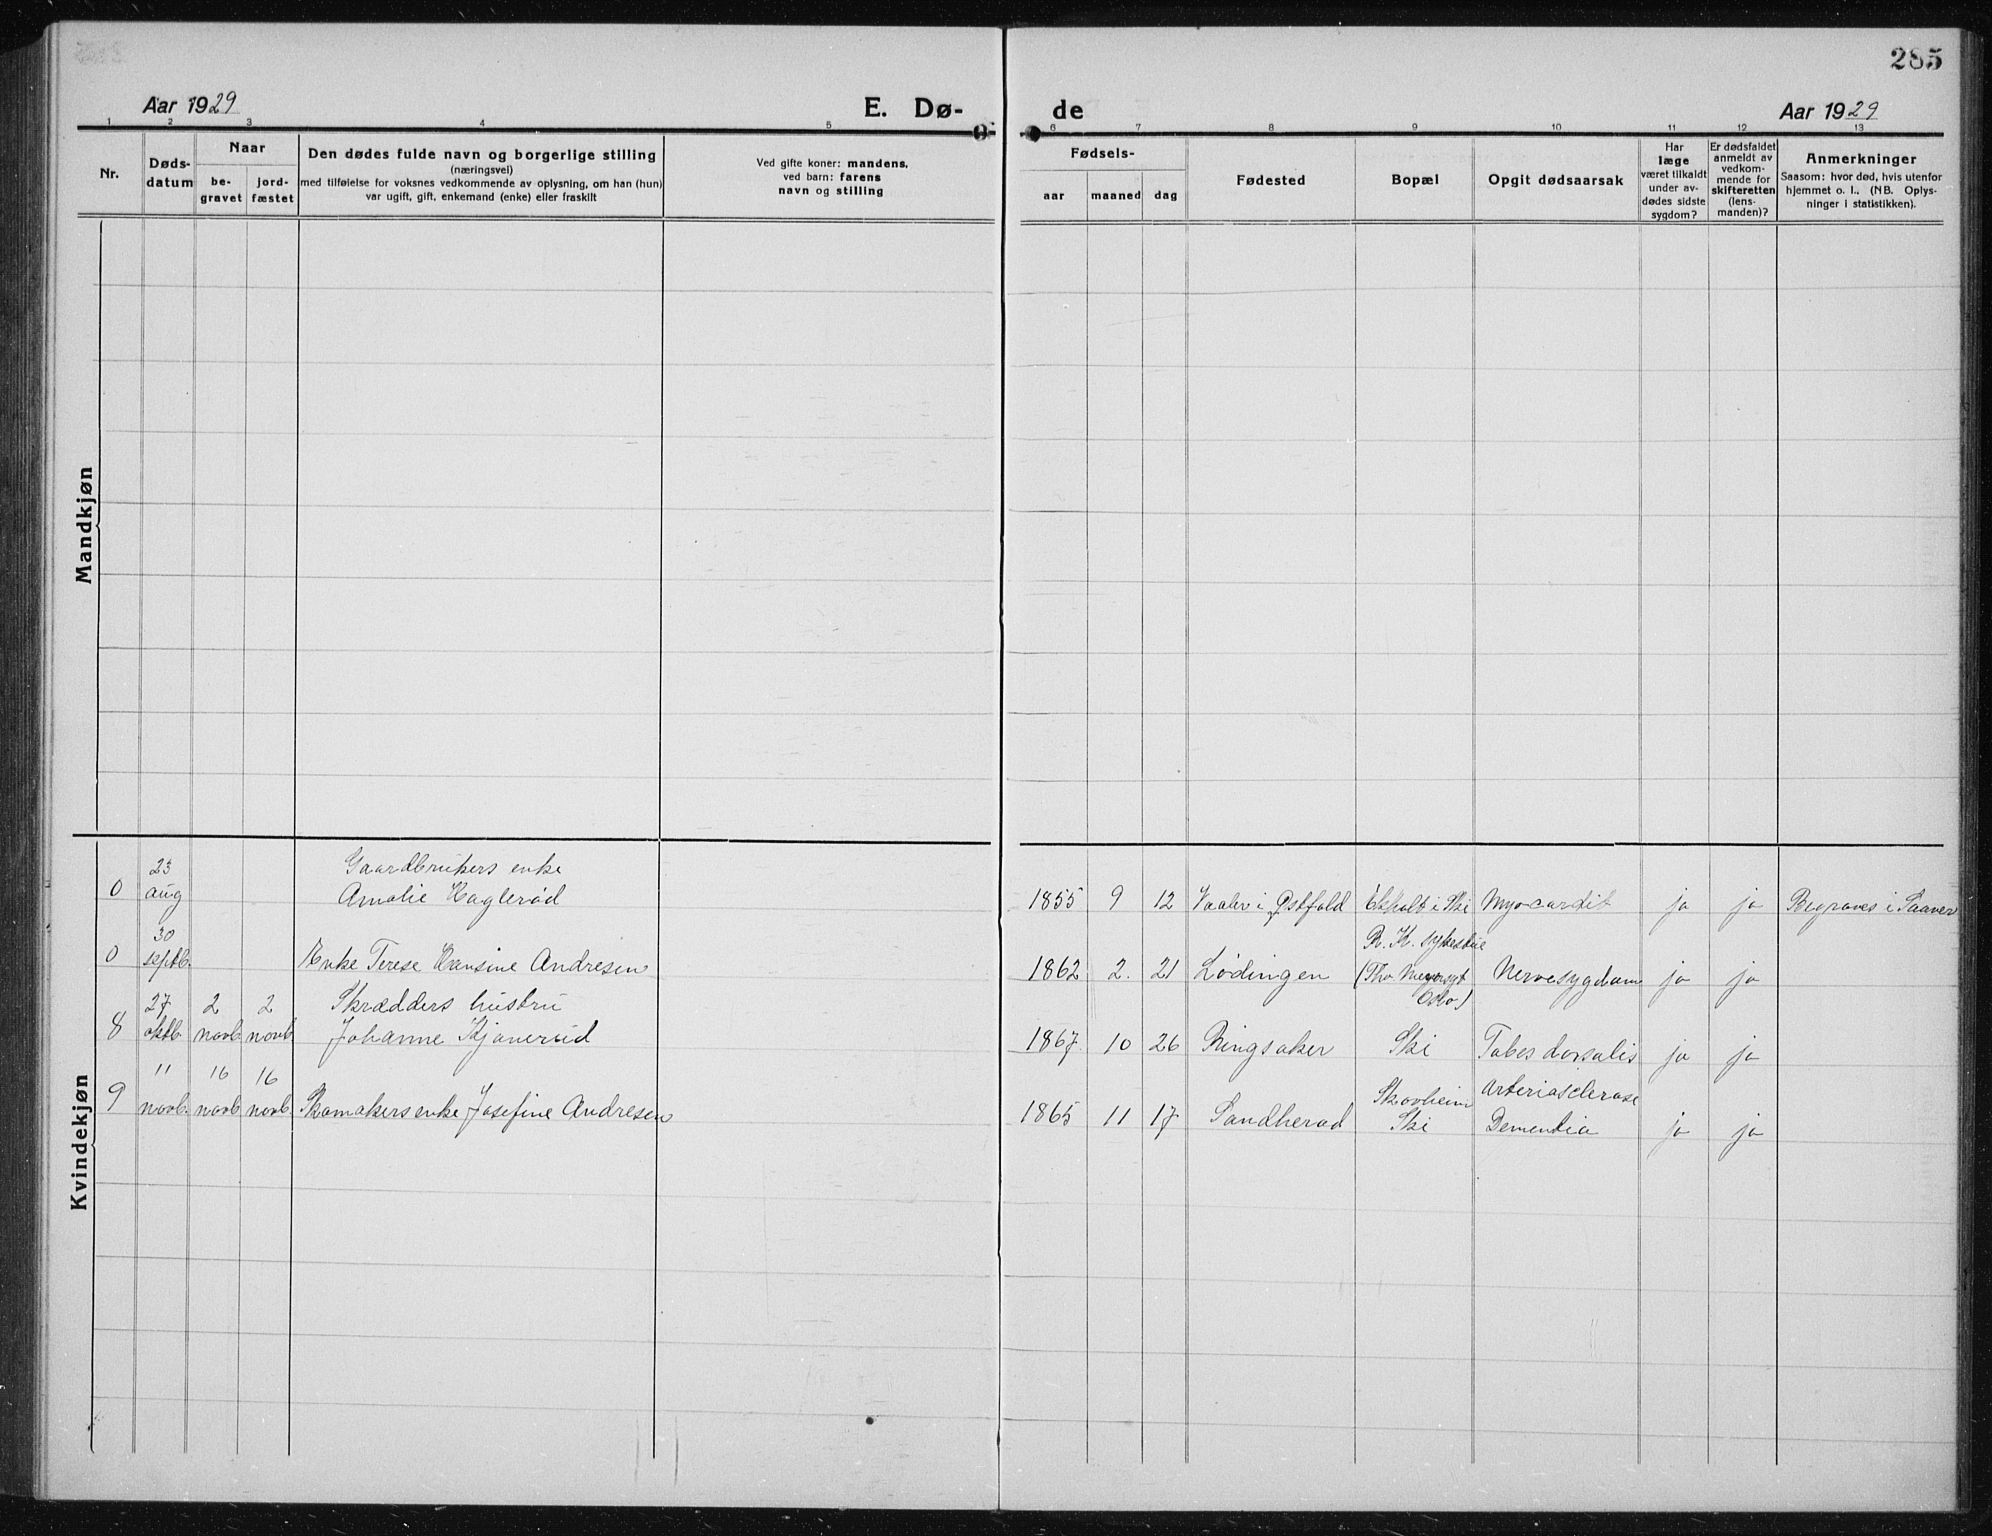 285
Aar 1929
E. Dø-
de
Aar 1929
1 2 3 4 5 6 7 8 9 10 11 12 13
Nr.
Døds-
datum
Naar
be-
gravet
jord-
fæstet
Den dødes fulde navn og borgerlige stilling
(næringsvei)
med tilføielse for voksnes vedkommende av oplysning, om han (hun)
var ugift, gift, enkemand (enke) eller fraskilt
Ved gifte koner: mandens,
ved barn: farens
navn og stilling
Fødsels-
aar maaned dag
Fødested
Bopæl
Opgit dødsaarsak
Har
læge
været tilkaldt
under av-
dødes sidste
sygdom?
Er dødsfaldet
anmeldt av
vedkom-
mende for
skifteretten
(lens-
manden)?
Anmerkninger
Saasom: hvor død, hvis utenfor
hjemmet o. l., (NB. Oplys-
ninger i statistikken).
Mandkjøn
Kvindekjøn
23 Gaardbrukers enke
0 aug Amalie Haglerød 1855 9 12 Vaaler i Østfold Ekholt i Ski Myocardit ja ja Begraves i Saaner
30 R. K. sykestue
0 septb. Enke Terese Hansine Andresen 1862 2. 21 Lødingen (Tho. Meyersgt Nervesygdom ja ja
Oslo)
27 2 2 Skrædders hustru
8 oktb. novb. novb. Johanne Kjønerud 1867 10 26 Ringsaker Ski Tabes dorsalis ja ja
11 16 16 Skovheim Arteriosclerose
9 novb. novb. novb. Skomakers enke Josefine Andresen 1865 11 17 Sandherad Ski Dementia ja ja